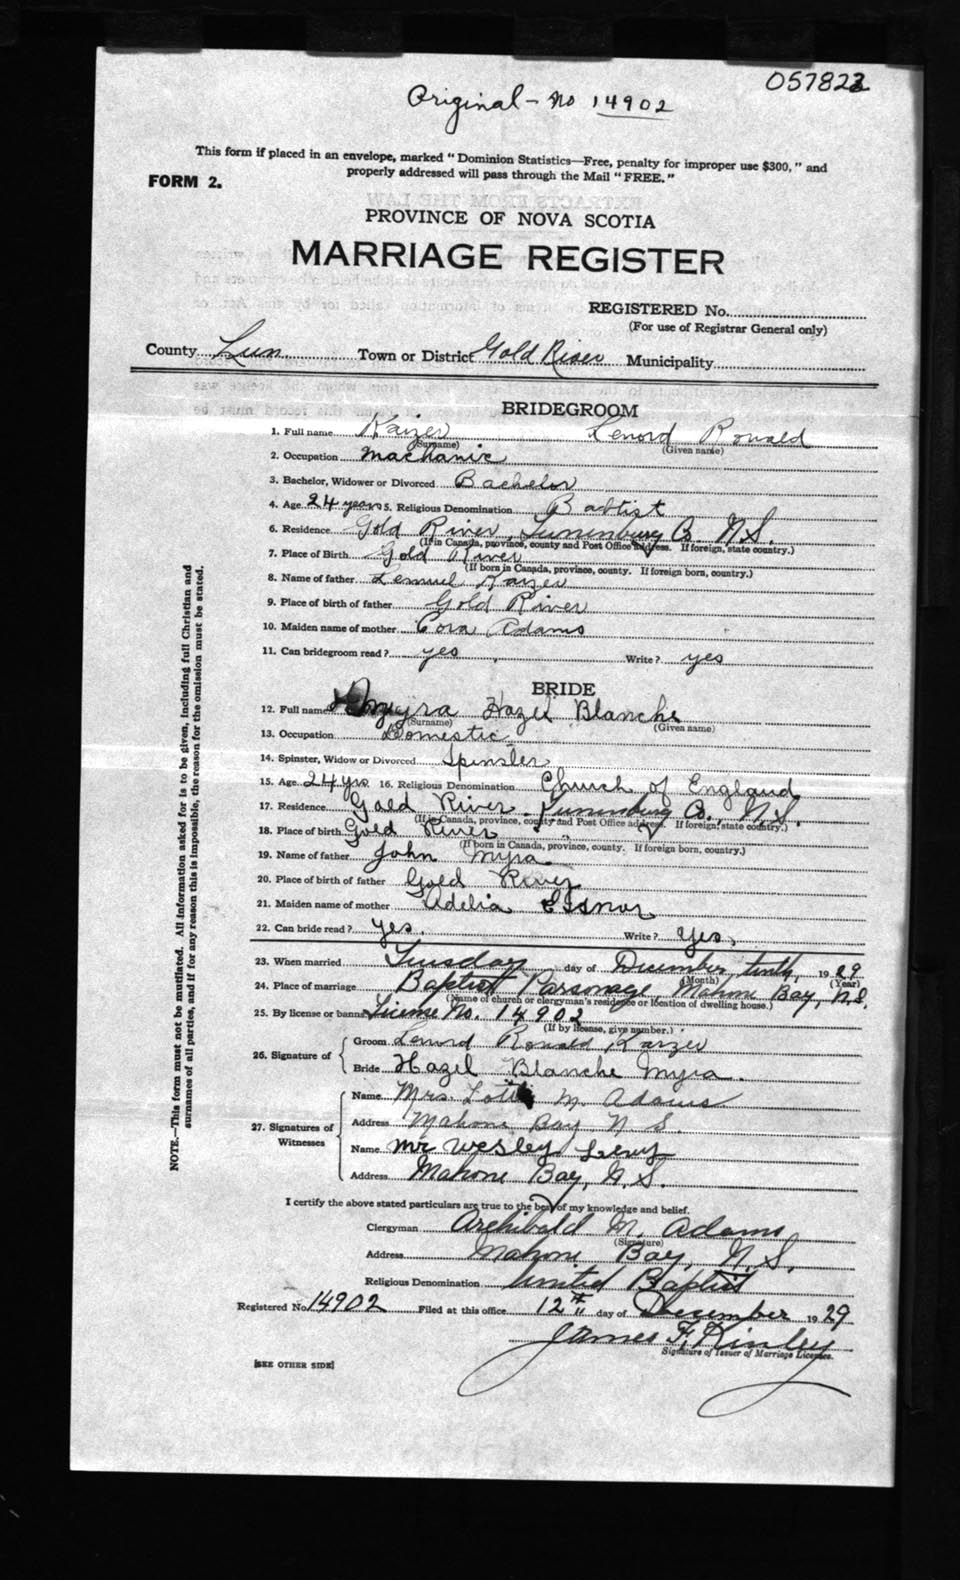 057823
Original - No 14902
This form if placed in an envelope, marked "Dominion Statistics—Free, penalty for improper use $300," and
properly addressed will pass through the Mail "FREE."
FORM 2.
PROVINCE OF NOVA SCOTIA
MARRIAGE REGISTER
REGISTERED No.
(For use of Registrar General only)
County Lun Town or District Gold River Municipality
BRIDEGROOM
1. Full name Kaizer Lenord Ronald
(Surname) (Given name)
2. Occupation Machanic
3. Bachelor, Widower or Divorced Bachelor
4. Age 24 years 5. Religious Denomination Babtist
6. Residence Gold River, Lunenburg Co. N.S.
(If in Canada, province, county and Post Office address. If foreign, state country.)
7. Place of Birth Gold River
(If born in Canada, province, county. If foreign born, country.)
8. Name of father Lemuel Kaizer
9. Place of birth of father Gold River
10. Maiden name of mother Cora Adams
11. Can bridegroom read? yes Write? yes
BRIDE
12. Full name Myra Hazel Blanche
(Surname) (Given name)
13. Occupation Domestic
14. Spinster, Widow or Divorced Spinster
15. Age 24 yrs 16. Religious Denomination Church of England
17. Residence Gold River Lunenburg Co., N.S.
(If in Canada, province, county and Post Office address. If foreign, state country.)
18. Place of birth Gold River " "
(If born in Canada, province, county. If foreign born, country.)
19. Name of father John Myra
20. Place of birth of father Gold River
21. Maiden name of mother Adelia Eisnor
22. Can bride read? yes. Write? Yes.
23. When married Tuesday day of December tenth, 1929
(Month) (Year)
24. Place of marriage Baptist Parsonage, Mahone Bay, N.S.
(Name of church or clergyman's residence or location of dwelling house.)
25. By license or banns License No. 14902
(If by license, give number.)
26. Signature of Groom Lenord Ronald Kaizer
Bride Hazel Blanche Myra.
27. Signatures of Witnesses
Name Mrs. M. Adams
Address Mahone Bay N S.
Name Mr Wesley Levy
Address Mahone Bay, N.S.
I certify the above stated particulars are true to the best of my knowledge and belief.
Clergyman Archibald M. Adams
(Signature)
Address Mahone Bay N.S.
Religious Denomination United Baptist
Registered No. 14902 Filed at this office 12th day of December 1929
James F. Kinley
Signature of Issuer of Marriage Licenses.
[SEE OTHER SIDE]
NOTE.—This form must not be mutilated. All information asked for is to be given, including full Christian and
surnames of all parties, and if for any reason this is impossible, the reason for the omission must be stated.